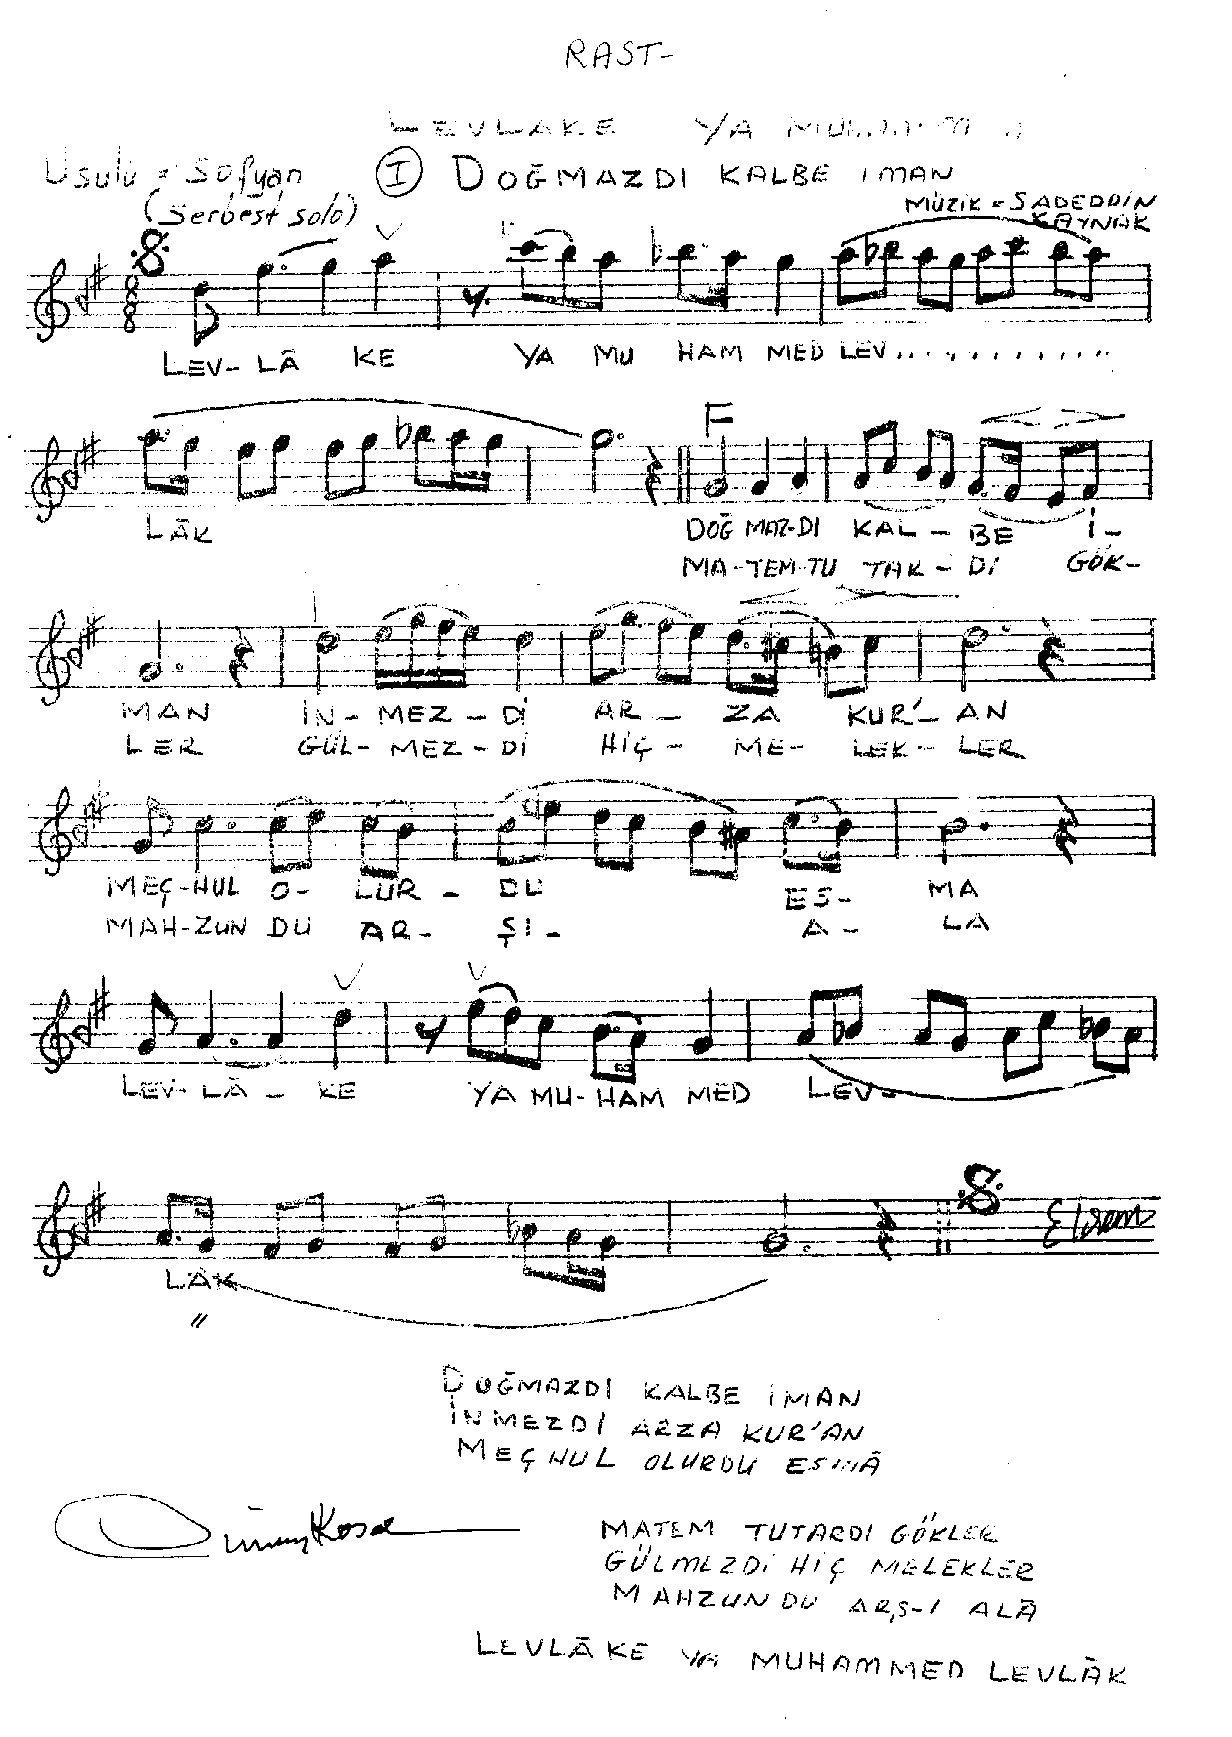 RAST-
LEVLAKE YA
Usulü = Sofyan I DOĞMAZDI KALBE İMAN
(Serbest solo) MÜZİK = SADEDDİN
KAYNAK
LEV-LÂ KE YA MU HAM MED LEV............
LÂK DOĞ MAZ-DI KAL - BE İ-
MA-TEM-TU TAR - DI GÖK-
MAN İN-MEZ-Dİ AR - ZA KUR'- AN
LER GÜL-MEZ-Dİ HİÇ - ME- LEK- LER
MEÇ-HUL O- LUR - DU ES- MA
MAH-ZUN DU AR- ŞI- A- LA
LEV-LÂ - KE YA MU-HAM MED LEV-
LÂK
"
DOĞMAZDI KALBE İMAN
İNMEZDİ ARZA KUR'AN
MEÇHUL OLURDU ESMÂ
MATEM TUTARDI GÖKLER
GÜLMEZDİ HİÇ MELEKLER
MAHZUNDU ARŞ-I ALÂ
LEVLÂKE YA MUHAMMED LEVLÂK